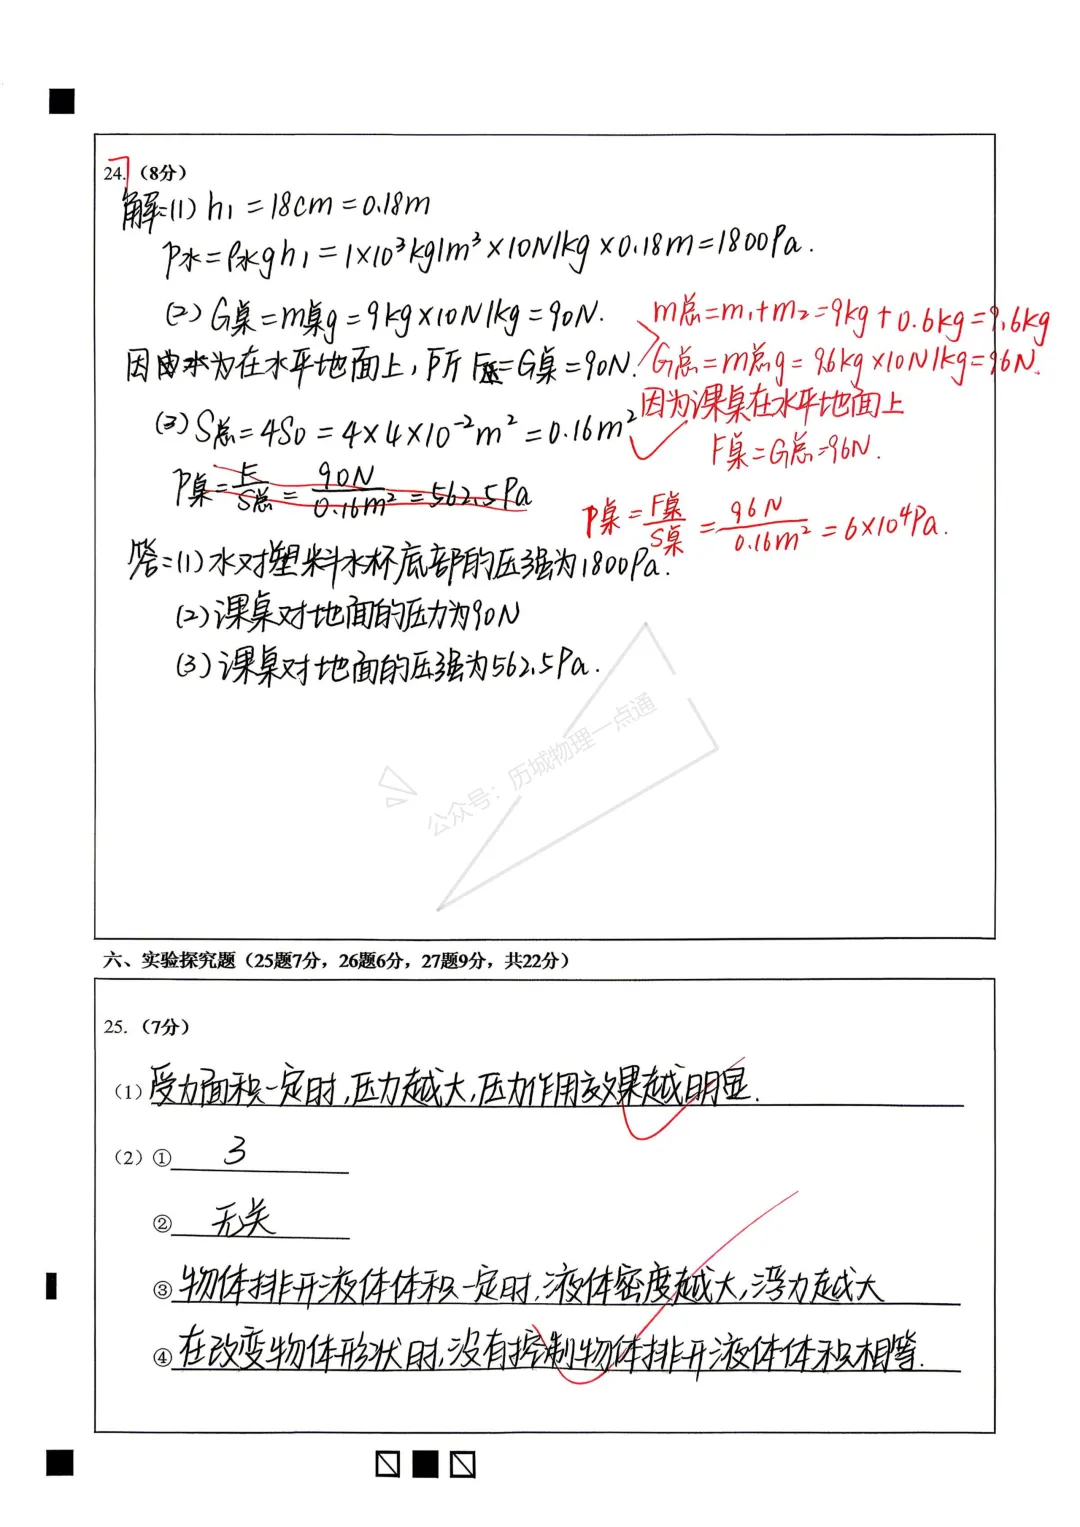 24. (8分)
解:(1) h₁ = 18cm = 0.18m
P水 = ρ水gh₁ = 1×10³kg/m³×10N/kg×0.18m=1800Pa.
(2) G桌 = m桌g = 9kg×10N/kg = 90N.
m总=m₁+m₂=9kg+0.6kg=9.6kg
因为在水平地面上,所以F压=G桌=90N.
G总=m总g=9.6kg×10N/kg=96N.
因为课桌在水平地面上
(3) S总=4S0=4×4×10⁻²m²=0.16m²
F桌=G总=96N.
P桌=F/S总=90N/0.16m²=562.5Pa
P桌=F桌/S桌=96N/0.16m²=6×10⁴Pa.
答:(1)水对塑料水杯底部的压强为1800Pa.
(2)课桌对地面的压力为90N
(3)课桌对地面的压强为562.5Pa.
公众号:历城物理一点通
六、实验探究题(25题7分,26题6分,27题9分,共22分)
25. (7分)
(1)受力面积一定时,压力越大,压力作用效果越明显.
(2)① 3
② 无关
③物体排开液体体积一定时,液体密度越大,浮力越大
④在改变物体形状时,没有控制物体排开液体体积相等.